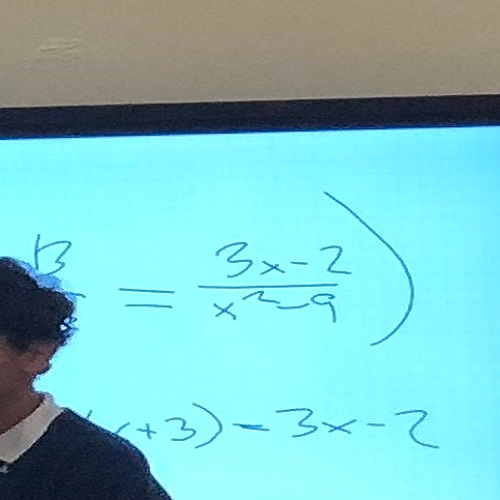 B = 3x-2 / x²-9 )
x+3) = 3x-2